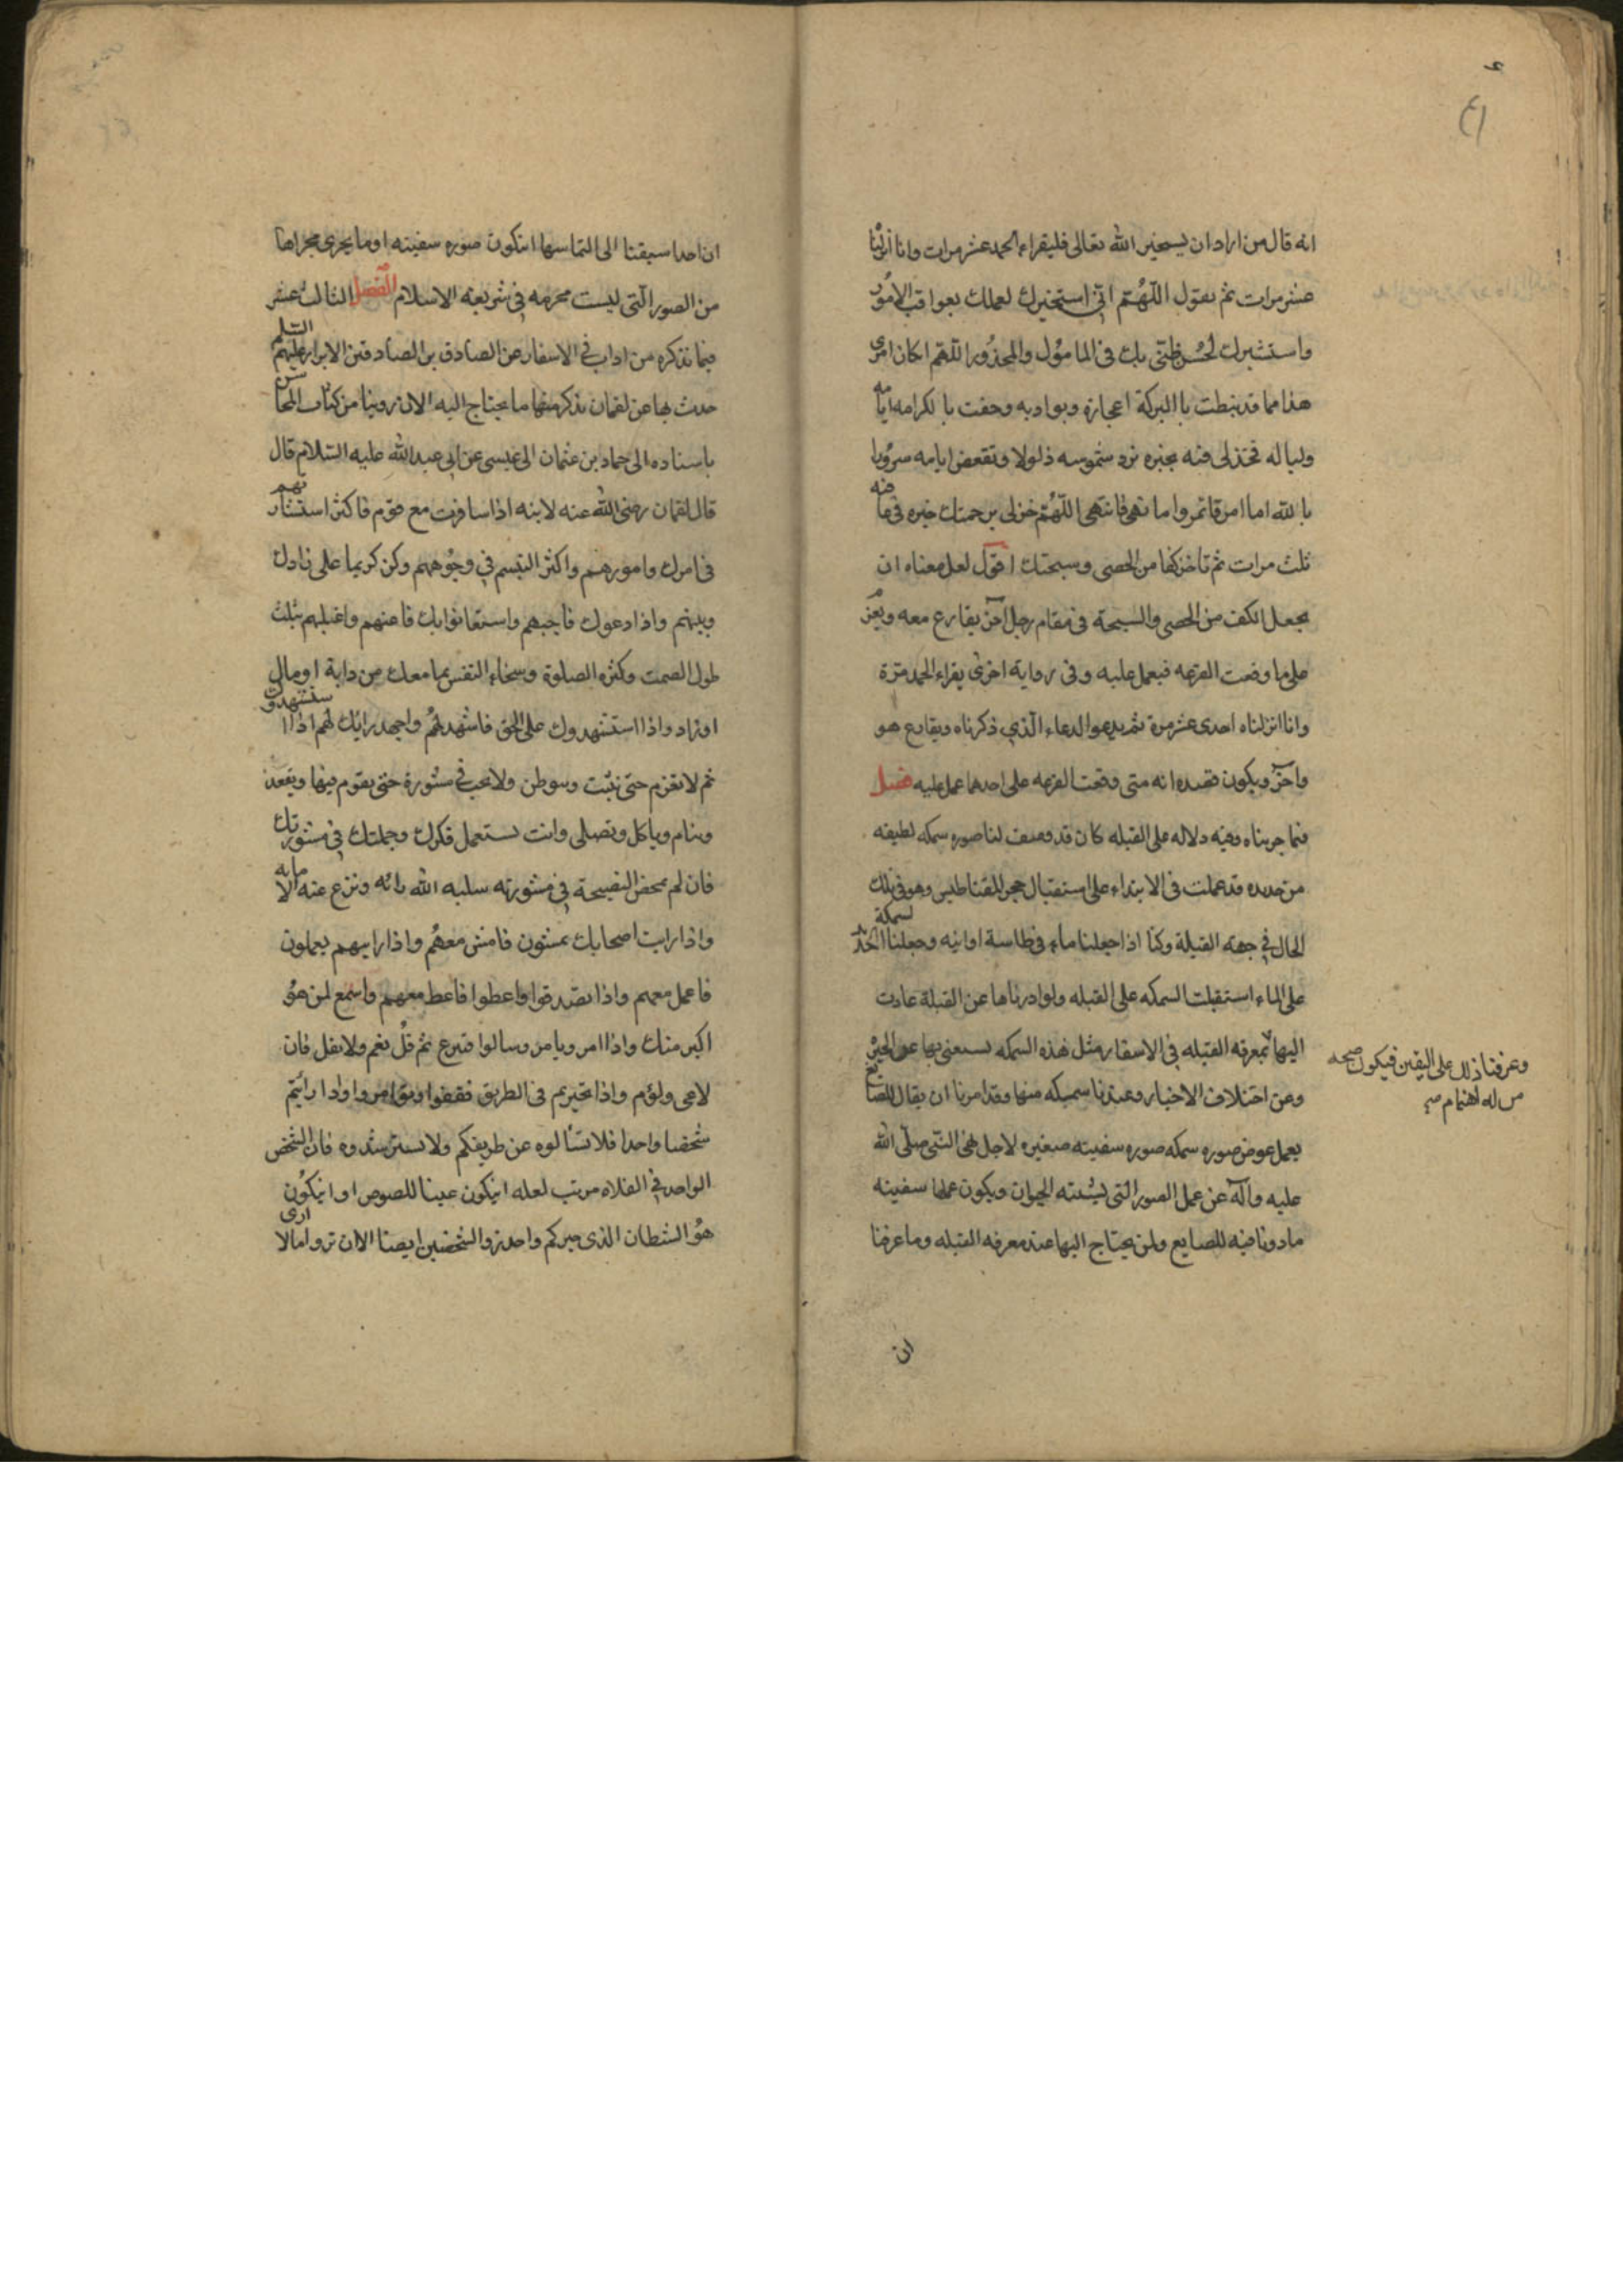 انه قال من اراد ان يستخير الله تعالى فليقراء الحمد عشر مرات وانا انزلنا
عشر مرات ثم يقول اللهُمّ انّي استخيرك لعملك بعواقب الامُور
واستشيرك لحُسن ظنّي بك في المامُول والمحذُور اللّهم انكان امرى
هذا مما قد نيطت باالبركة اعجازه وبواديه وحفت باالكرامه ايامه
ولياله فخذلى فيه بخيره ترد شموسه ذلولا وتقعض ايامه سرُورا
باالله اما امر فاتمروا ما نهى فانتهى اللّهُمّ خرلى برحمتك خيره في عافيه
ثلث مرات ثم تاخذ كفا من الحصى وسبحتك اقول لعل معناه ان
يجعل الكف من الحصى والسبحة في مقام رجل آخر يقارع معه ويعزم
على ما وقعت القرعه فيعمل عليه وفي رواية اخرى يقراء الحمد مرّة
وانا انزلناه احدى عشر مرة ثم يدعوا الدعاء الّذي ذكرناه ويقارع هو
واخر ويكون قصده انه متى وقعت القرعه على احدهما عمل عليه فصل
فيما جربناه وفيه دلاله على القبله كان قد وصف لنا صوره سمكه لطيفه
من حديده قد عملت في الابتداء على استقبال حجر المقناطيس وهو في تلك
الحال في جهة القبلة وكنا اذا جعلنا ماء في طاسة اوانيه وجعلنا السمكة الحديد
على الماء استقبلت السمكه على القبله ولو ادرناها عن القبلة عادت
اليها بمعرفه القبله في الاسفار مثل هذه السمكه يستغنى بها عن الحيره
وعن اختلاف الاخبار وعندنا سميكه منها وقد امرنا ان يقال للصايغ
يعمل عوض صوره سمكه صوره سفينه صغيره لاجل نهى النّبى صلّى الله
عليه وآله عن عمل الصور الّتى ليشبه الحيوان ويكون عملها سفينه
ماذونا فيه للصايع ولمن يحتاج اليها عند معرفه القبله وما عرفنا
ان
وعرفنا ذلك على اليقين فيكون صحبه
من له اهتمام صح
ان احدا سبقنا الى التماسها انتكون صوره سفينه او ما يجرى مجراها
من الصور الّتى ليست محرمه في شريعة الاسلام الفصل الثالث عشر
فيما نذكره من اداب في الاسفار عن الصادق بن الصادقين الابرار عليهم السّلم
حدث بها عن لقمان نذكر منها ما يحتاج اليه الان روينا من كتاب المحاسن
باسناده الى حماد بن عثمان الى عيسى عن ابي عبد الله عليه السّلام قال
قال لقمان رضى الله عنه لابنه اذا سافرت مع قوم فاكثر استشارتهم
في امرك وامورهم واكثر التبسم في وجُوههم وكن كريما على زادك
وبينهم واذا دعوك فاجبهم واستعانوا بك فاعنهم واغلبهم بثلث
طول الصمت وكثره الصلوة وسخاء النفس بما معك من دابة او مال
او زاد واذا استشهدوك على الحق فاشهد لهُم واجهد رايك لهم اذا استشهدوك
ثم لا تعزم حتى تثبت وسوطن ولا تجب في مشورة حتى يقوم فيها ويقعد
وينام وياكل وتصلى وانت تستعمل فكرك وحكمتك في مشورتك
فان لم يمحض النصيحة في مشورته سلبه الله رائه ونزع عنه الامانه
واذا رايت اصحابك يمشون فامش معهُم واذا رايتهم يعملون
فاعمل معهم واذا تصدقوا واعطوا فاعط معهم واسمع لمن هُو
اكبر منك واذا امروبامر وسالوا فتبرع ثم قُل نعم ولا تقل فان
لاعى ولؤم واذا تحيرتم في الطريق فقفوا وتوامروا واذا رائتم
شخصا واحدا فلا تسألوه عن طريقكم ولا تسترشدوه فان الشخص
الواحد في الفلاه مريب لعله ايكون عينا للصوص او ايكُون
هُو الشطان الذى حيركم واحذر والشخصين ايضا الا ان تروا ما لا ارى